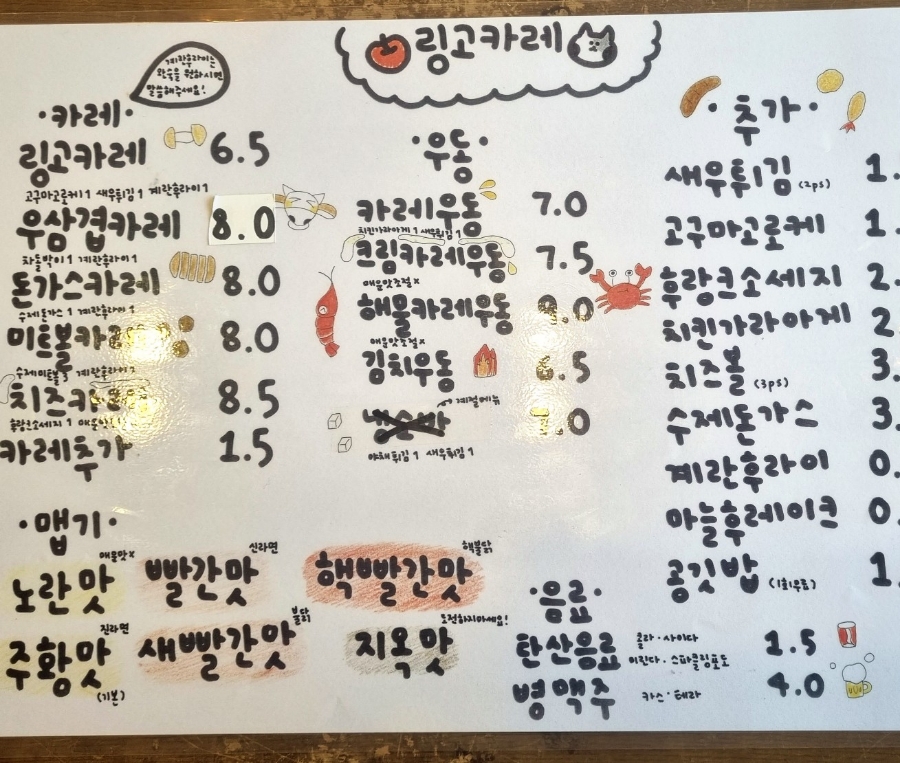 링고카레
계란후라이는
완숙을 원하시면
말씀해주세요!
·카레·
링고카레 6.5
고구마고로케1 새우튀김1 계란후라이1
우삼겹카레 8.0
차돌박이1 계란후라이1
돈가스카레 8.0
수제돈가스1 계란후라이1
미트볼카 8.0
수제미트볼3 계란후라이2
치즈카 8.5
후랑크소세지1 매운맛
카레추가 1.5
·우동·
카레우동 7.0
치킨가라아게1 새우튀김1
크림카레우동 7.5
매운맛조절x
해물카레우동 9.0
매운맛조절x
김치우동 6.5
계절메뉴
.0
야채튀김1 새우튀김1
·추가·
새우튀김(2ps) 1.
고구마고로케 1.
후랑크소세지 2.
치킨가라아게 2.
치즈볼(3ps) 3.
수제돈가스 3.
계란후라이 0.
마늘후레이크 0.
공깃밥(1회무료) 1.
·맵기·
매운맛x
노란맛
신라면
빨간맛
핵불닭
핵빨간맛
진라면
주황맛
(기본)
불닭
새빨간맛
도전하지마세요!
지옥맛
·음료·
탄산음료 콜라·사이다 1.5
환타·스파클링포도
병맥주 카스·테라 4.0